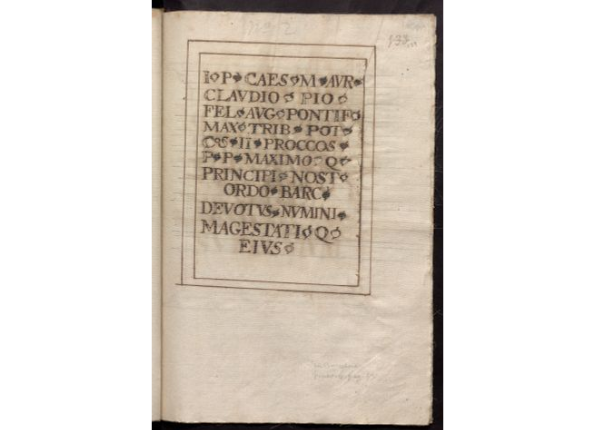 I P CAES M AVR
CLAVDIO PIO
FEL AVG PONTIF
MAX TRIB POT
COS II PROCCOS
P P MAXIMO Q
PRINCIPI NOST
ORDO BARC
DEVOTVS NVMINI
MAGESTATI Q
EIVS